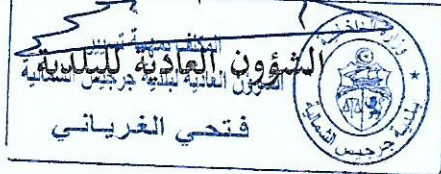 المكلف بتسيير
الشؤون العادية للبلدية
الشؤون العادية لبلدية جرجيس الشمالية
فتحي الغرياني
وزارة الداخلية
بلدية جرجيس الشمالية